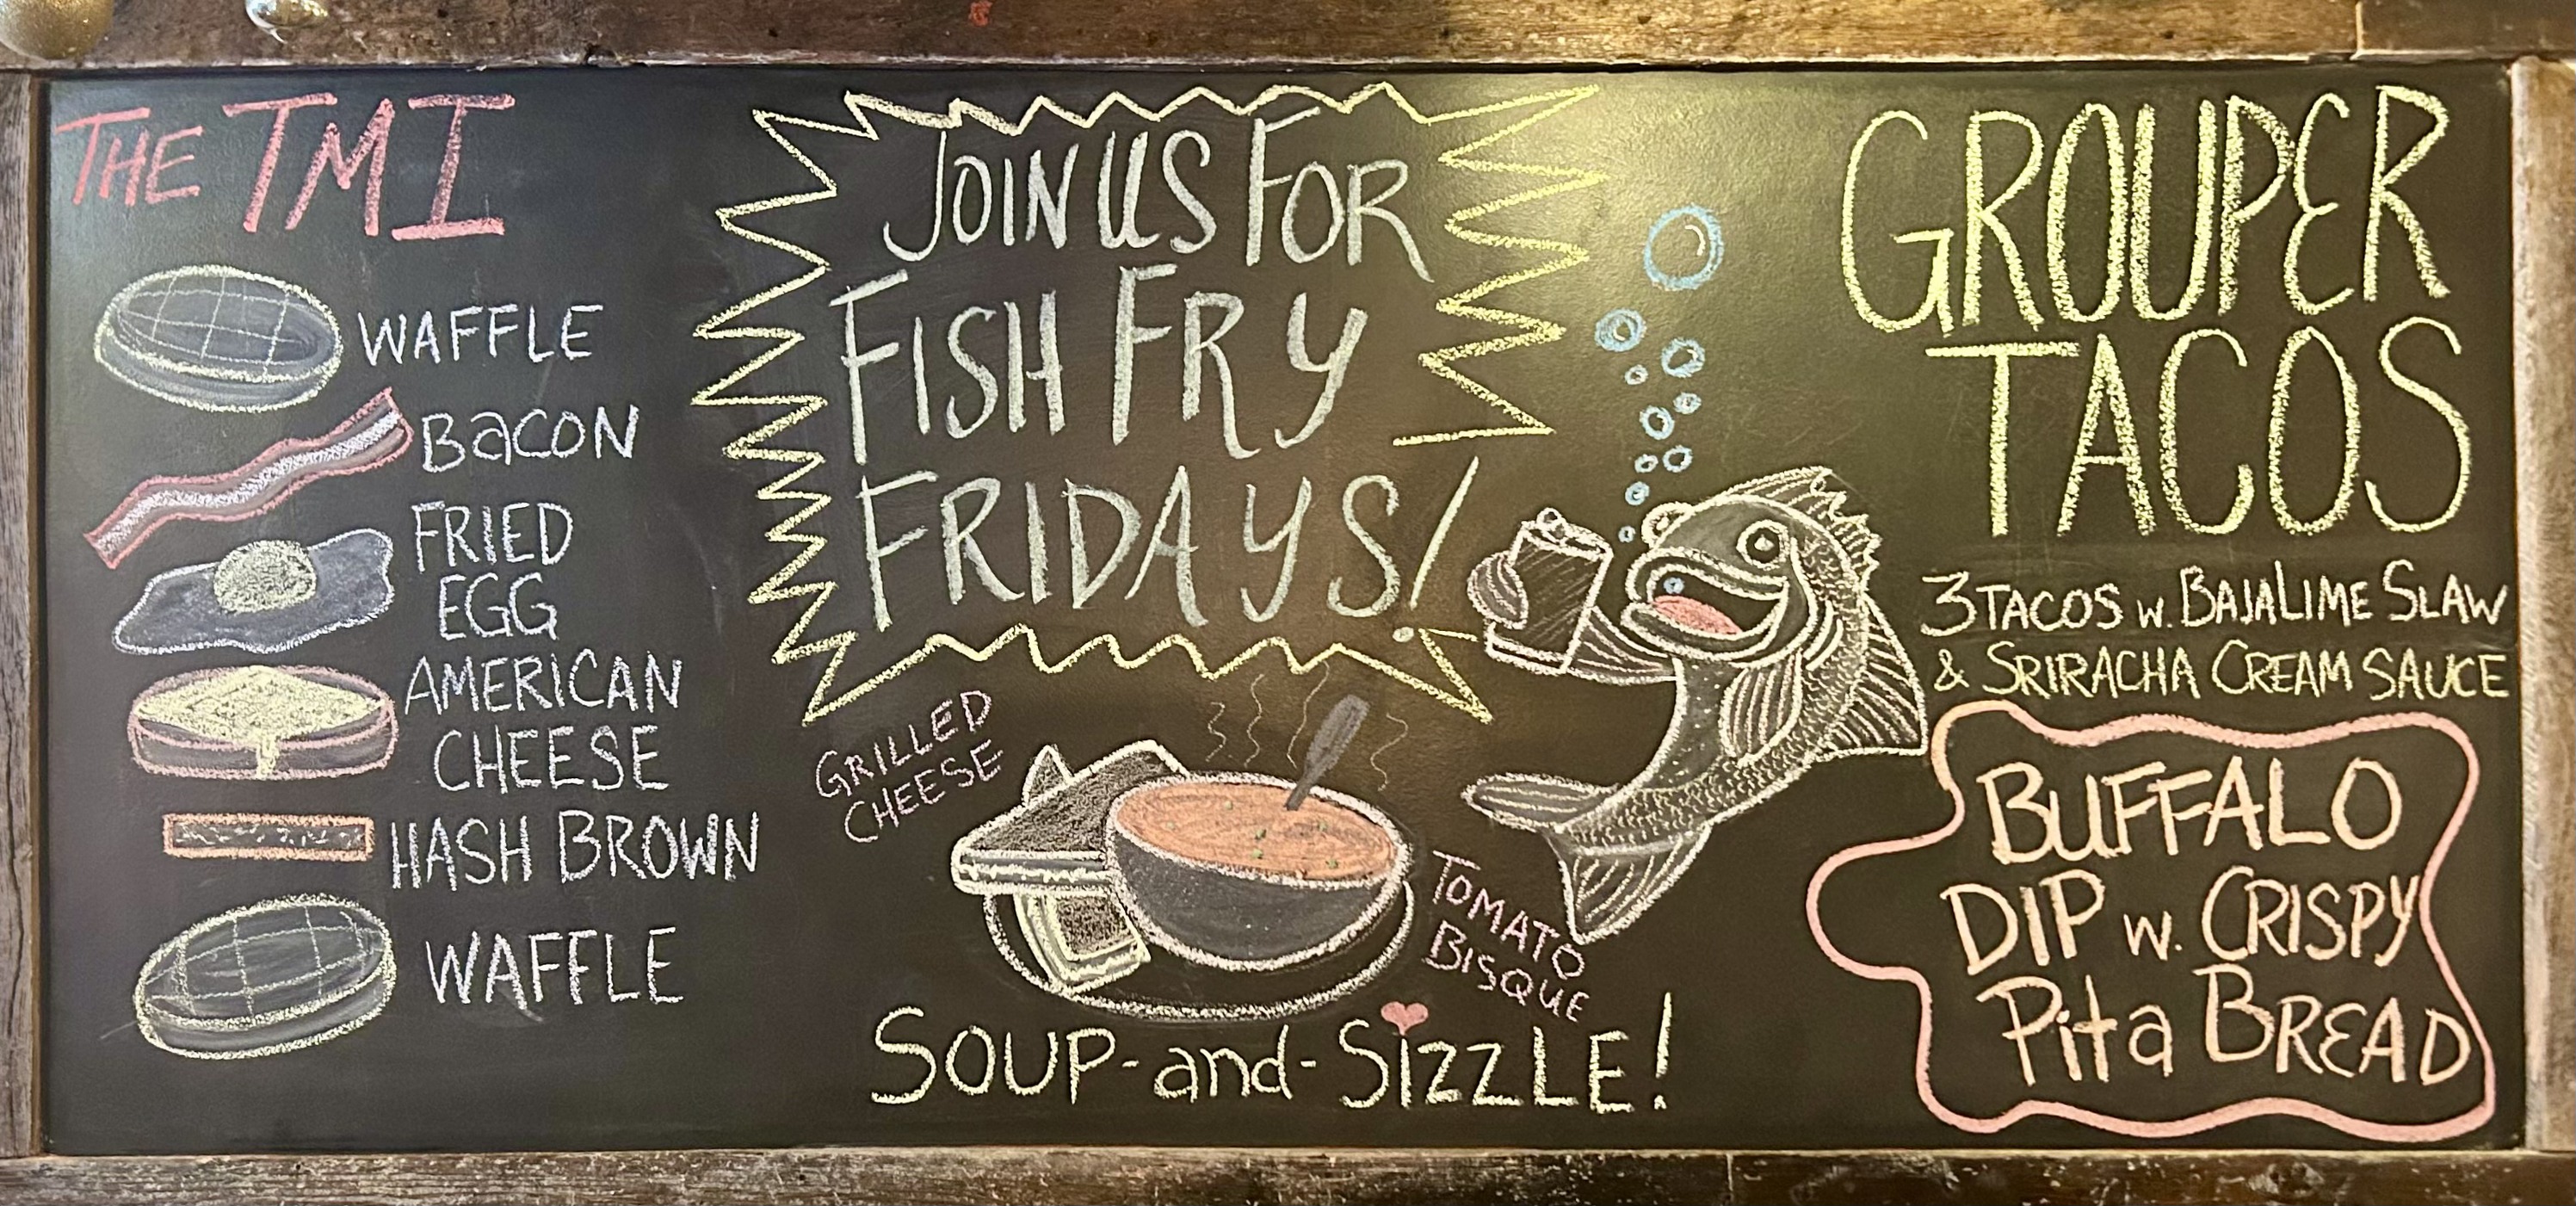 THE TMI
WAFFLE
BacON
FRIED
EGG
AMERICAN
CHEESE
HASH BROWN
WAFFLE
JOIN US FOR
FISH FRY
FRIDAYS!
GRILLED
CHEESE
TOMATO
BISQUE
SOUP-and-SiZZLE!
GROUPER
TACOS
3 TACOS W. BAJA LIME SLAW
& SRIRACHA CREAM SAUCE
BUFFALO
DIP W. CRISPY
Pita BREAD